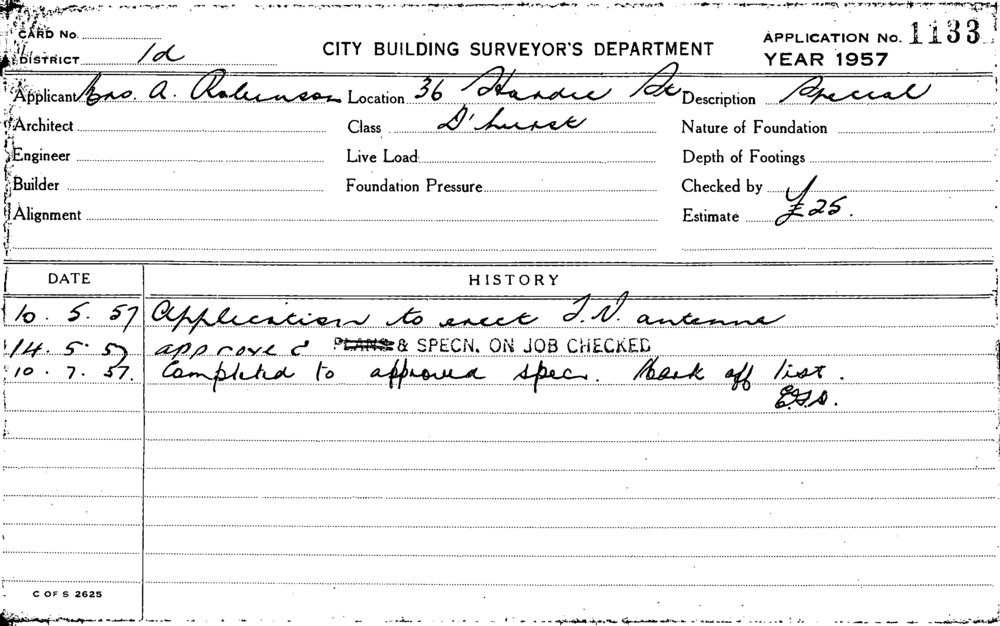 CARD No.
DISTRICT 1d
CITY BUILDING SURVEYOR'S DEPARTMENT
APPLICATION No. 1133
YEAR 1957
Applicant Mrs. A. Robinson Location 36 Hardie St Description Special
Architect Class D'hurst Nature of Foundation
Engineer Live Load Depth of Footings
Builder Foundation Pressure Checked by
Alignment Estimate £25.
DATE HISTORY
10. 5. 57 Application to erect T.V. antenna
14. 5. 57 approved PLANS & SPECN. ON JOB CHECKED
10. 7. 57. Completed to approved specn. Mark off list.
C OF S 2625